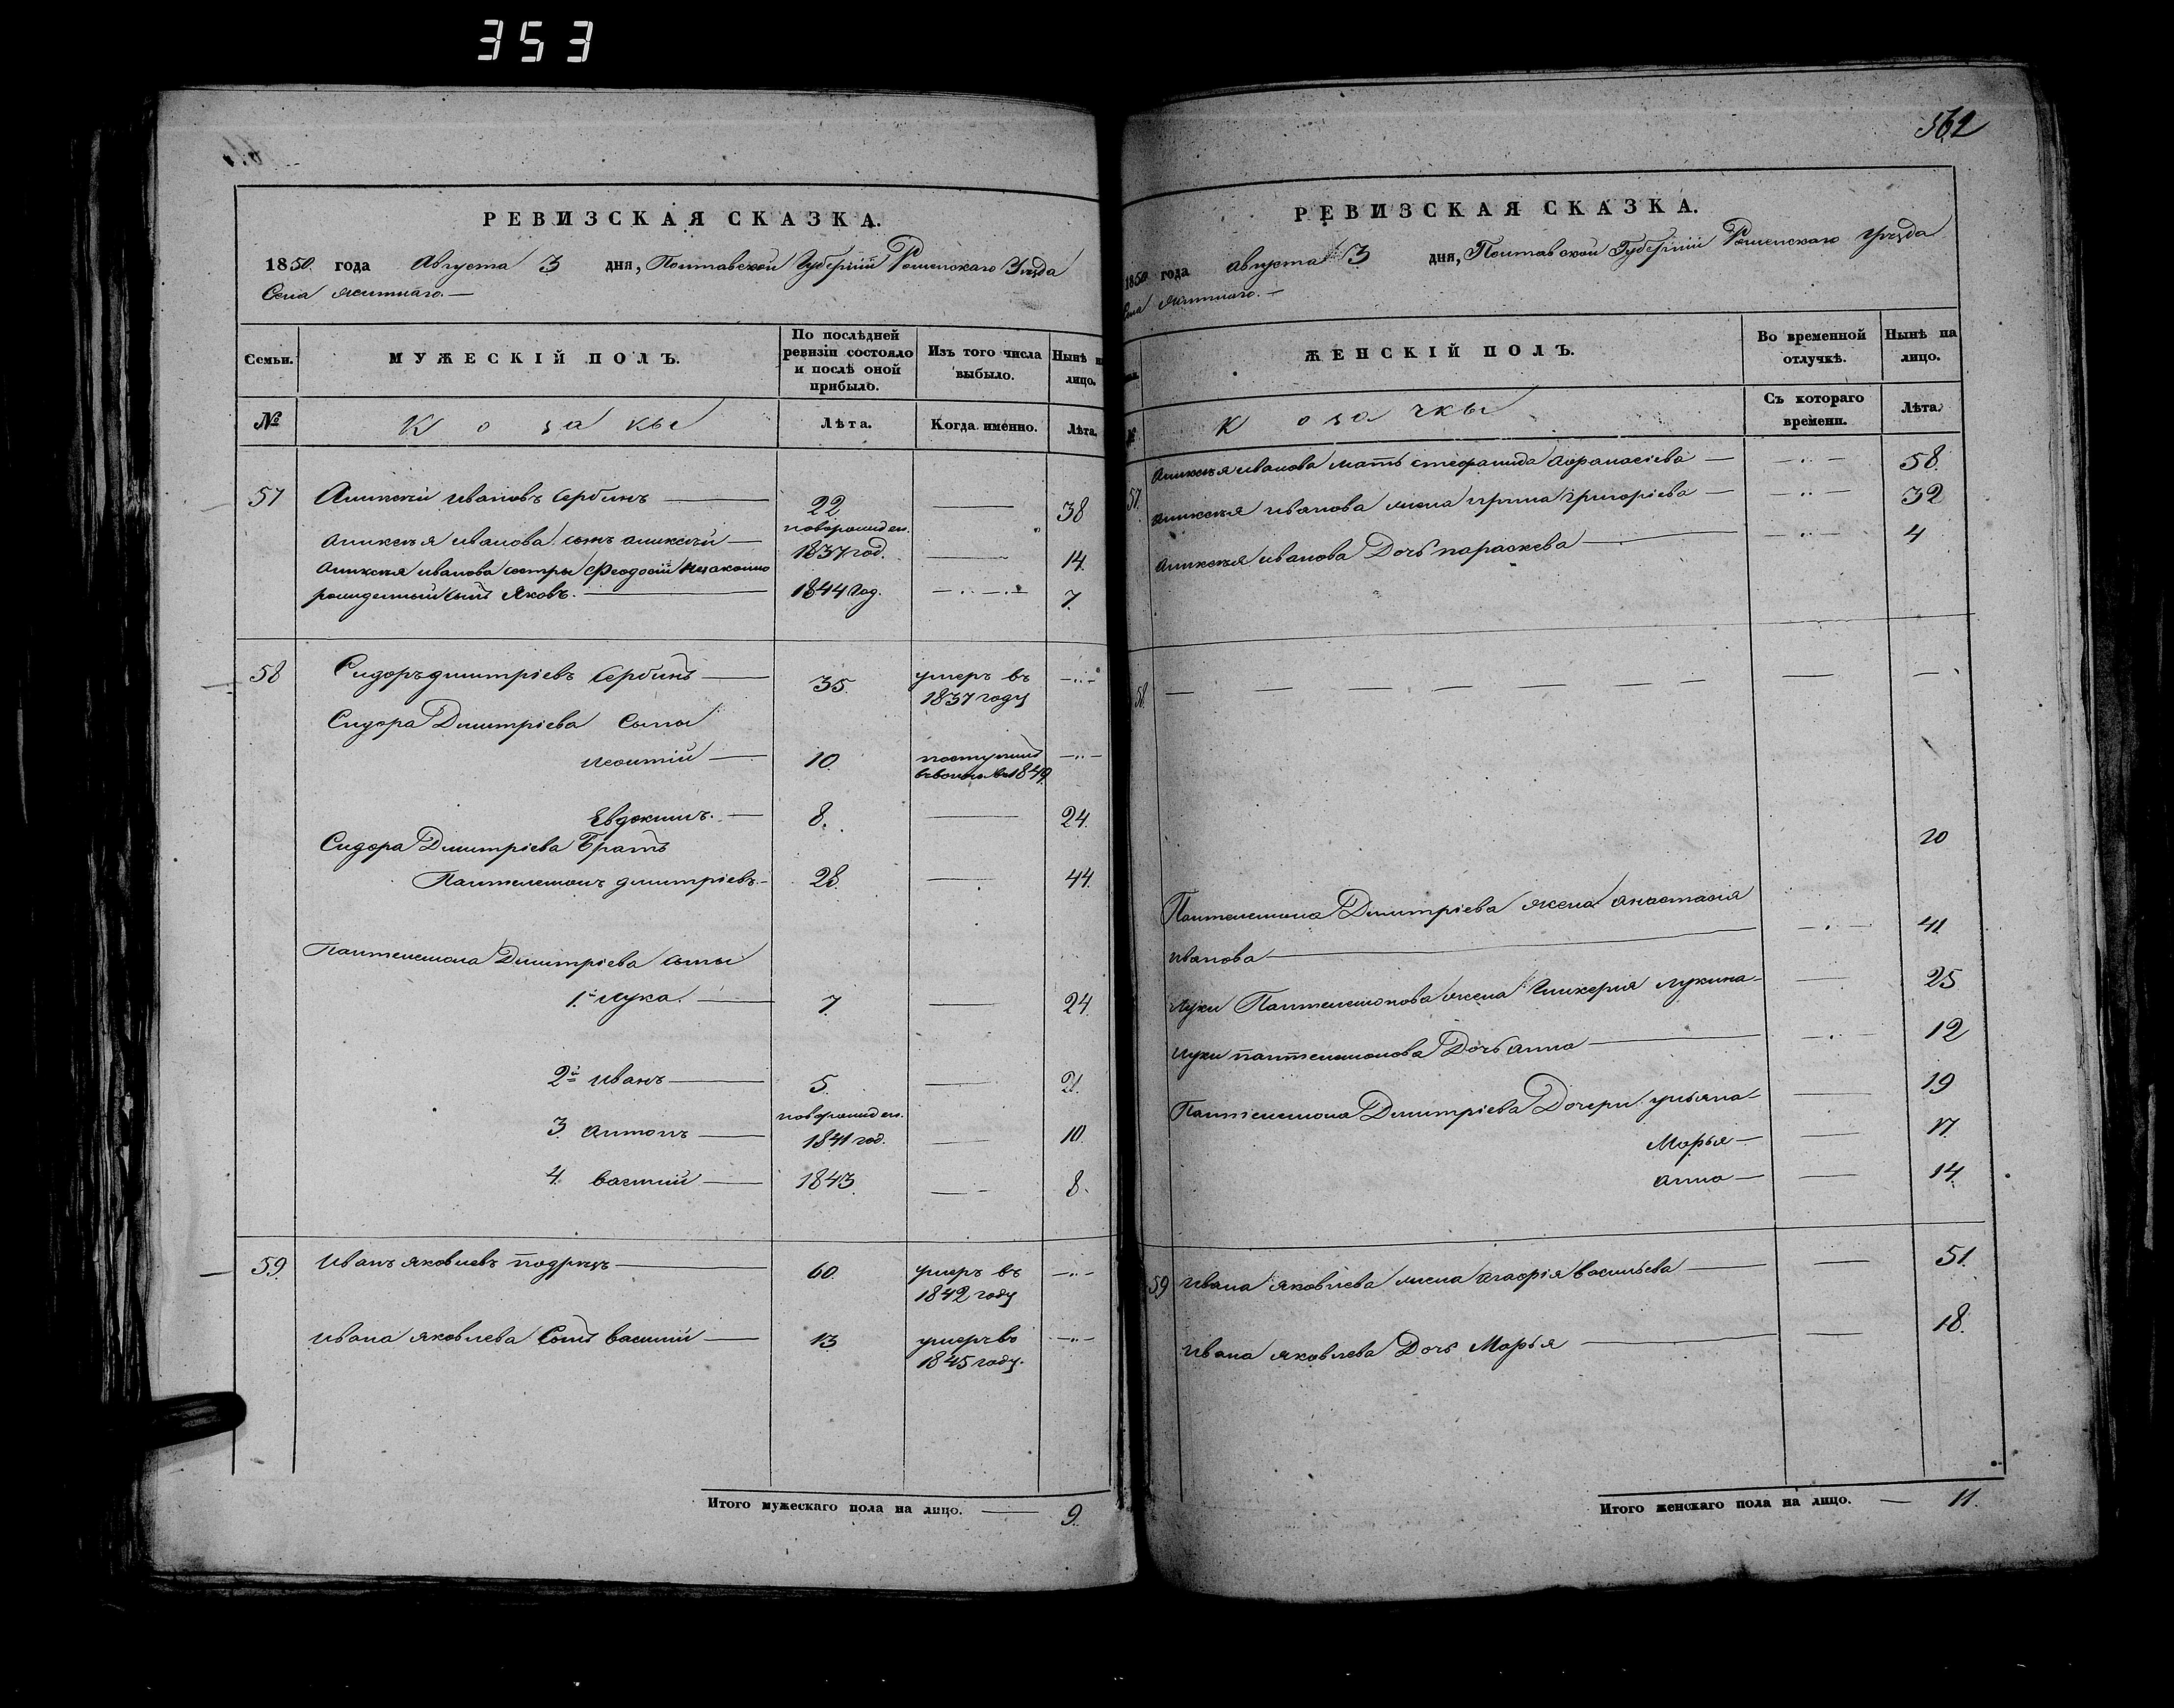 353
РЕВИЗСКАЯ СКАЗКА.
1850 года Августа 3 дня, Полтавской Губерніи Роменскаго Уезда
Села
Семьи.
МУЖЕСКІЙ ПОЛЪ.
По послѣдней ревизіи состояло и послѣ оной прибыло.
Изъ того числа выбыло.
Нынѣ на лицо.
№
Козаки
Лѣта.
Когда именно.
Лѣта.
57 Алексѣй Ивановъ Сербинъ 22 38
новорожден.
Алексѣя Иванова сынъ Алексѣй 1837 год. 14.
Алексѣя Иванова сестры Феодосіи незаконно
рожденный сынъ Яковъ. 1844 год. 7.
58 Сидоръ Димитріевъ Сербинъ 35. умеръ въ
1837 году
Сидора Димитріева Сыны
Леонтій 10. поступилъ
1849
Евдокимъ. 8. 24.
Сидора Димитріева Братъ
Пантелемонъ Димитріевъ 28. 44.
Пантелемона Димитріева сыны
1й Лука. 7. 24.
2й Иванъ 5. 21.
новорожден.
3. Антонъ 1841 год. 10.
4. Василій 1843. 8.
59. Иванъ Яковлевъ 60. умеръ въ
1842 году
Ивана Яковлева Сынъ Василій 13. умеръ въ
1845 году.
Итого мужескаго пола на лицо. 9.
562
РЕВИЗСКАЯ СКАЗКА.
1850 года Августа 3 дня, Полтавской Губерніи Роменскаго Уезда
Села
ЖЕНСКІЙ ПОЛЪ.
Во временной отлучкѣ.
Нынѣ на лицо.
№
Козачки
Съ котораго времени.
Лѣта.
57. Алексѣя Иванова мать Стефанида Афанасіева 58.
Алексѣя Иванова жена Ирина Григоріева 32
Алексѣя Иванова Дочь Параскева 4
58.
20
Пантелемона Димитріева жена Анастасія
Иванова 41.
Луки Пантелемонова жена Гликерія Лукина 25
Луки Пантелемонова Дочь Анна 12
Пантелемона Димитріева Дочери Ульяна 19
Марья 17.
Анна 14.
59 Ивана Яковлева жена Агафія Васильева 51.
Ивана Яковлева Дочь Марья 18.
Итого женскаго пола на лицо. 11.